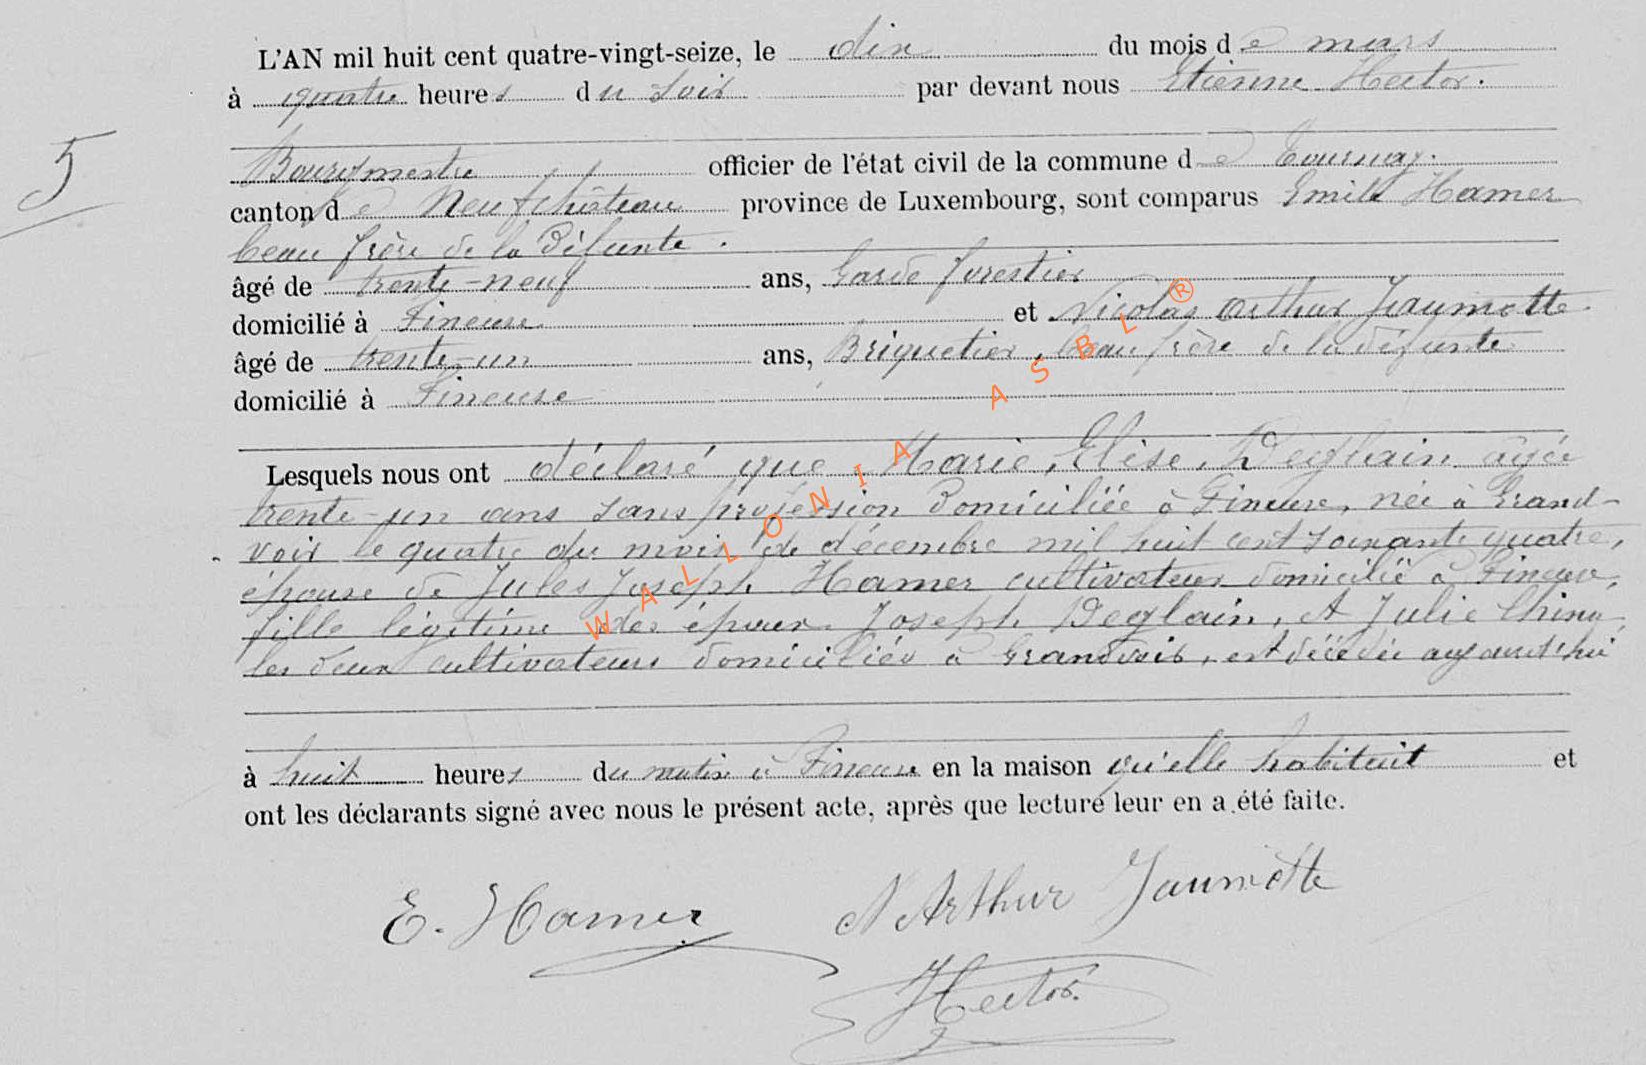 L'AN mil huit cent quatre-vingt-seize, le dix du mois de mars
à quatre heures du soir par devant nous Etienne Hector.
5
Bourgmestre officier de l'état civil de la commune de Tournay.
canton de Neufchâteau province de Luxembourg, sont comparus Emile Hamer
beau frère de la Défunte.
âgé de trente-neuf ans, Garde forestier
domicilié à Fineuse et Nicolas Arthur Jaumotte
âgé de trente-un ans, Briquetier, beau frère de la défunte
domicilié à Fineuse
Lesquels nous ont déclaré que Marie, Elise, Deglain âgée
trente-un ans sans profession Domiciliée à Fineuse, née à Grand-
voir le quatre du mois de décembre mil huit cent soixante quatre,
épouse de Jules Joseph Hamer cultivateur domicilié à Fineuse,
fille légitime des époux Joseph Deglain, et Julie
les deux cultivateurs domiciliés à Grandvoir, est décédée aujourd'hui
à huit heures du matin à Fineuse en la maison qu'elle habitait et
ont les déclarants signé avec nous le présent acte, après que lecture leur en a été faite.
E. Hamer N Arthur Jaumotte
Hector
WALLONIA ASBL ®